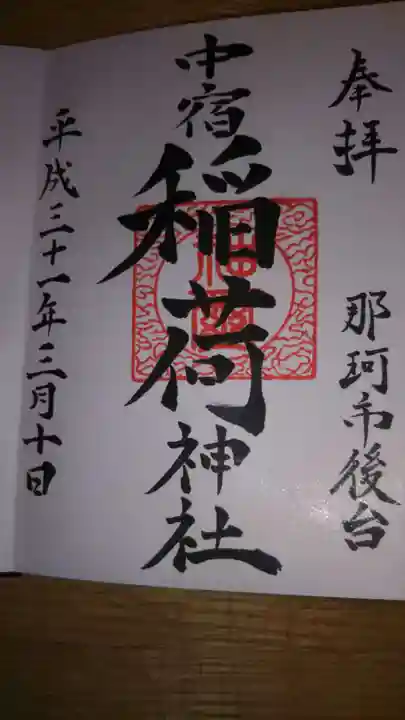 奉拝
那珂市後台
中宿
稲荷
神社
平成三十一年三月十日